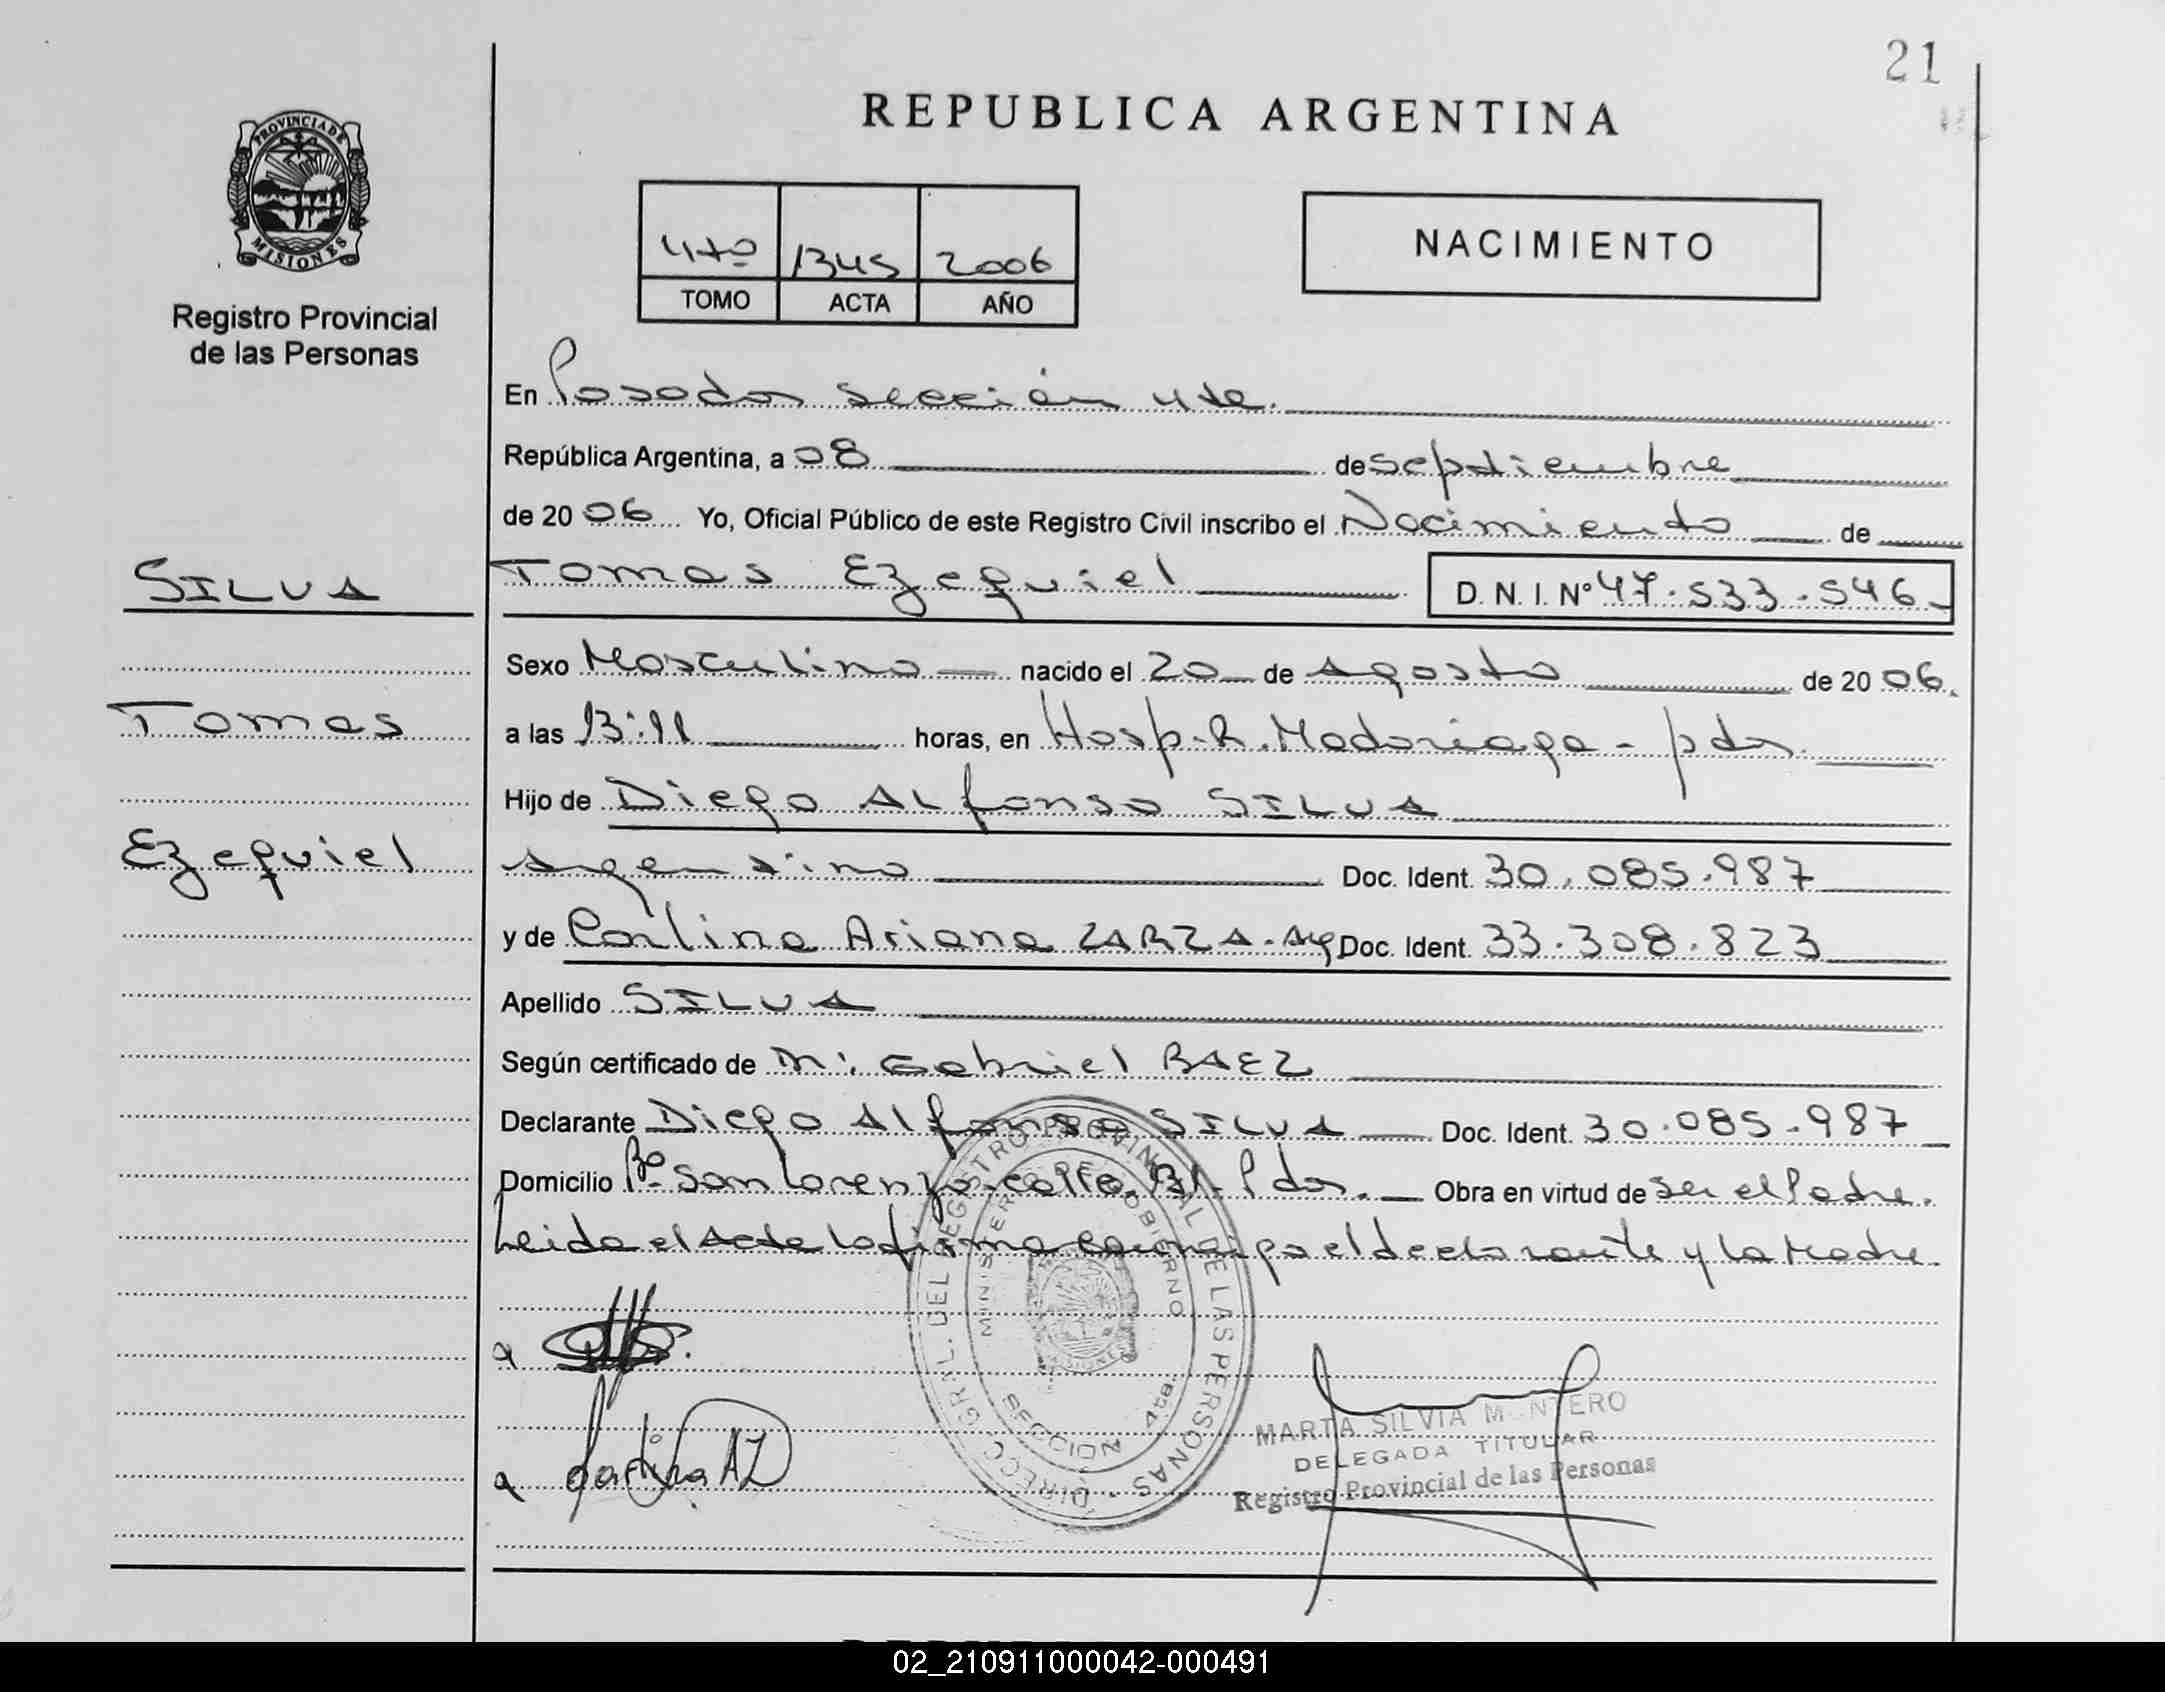 21
REPUBLICA ARGENTINA
PROVINCIA DE
MISIONES
Registro Provincial
de las Personas
4to 1345 2006
TOMO ACTA AÑO
NACIMIENTO
En Posadas sección 4ta.
República Argentina, a 08 de septiembre
de 2006 Yo, Oficial Público de este Registro Civil inscribo el Nacimiento de
SILVA Tomas Ezequiel D. N. I. Nº 47.533.546
Sexo Masculino nacido el 20 de Agosto de 2006.
Tomas a las 13:11 horas, en Hosp. R. Madariaga - pdas.
Hijo de Diego Alfonso SILVA
Ezequiel Argentino Doc. Ident. 30.085.987
y de Carlina Ariana ZARZA - Arg Doc. Ident. 33.308.823
Apellido SILVA
Según certificado de M: Gabriel BAEZ
Declarante Diego Alfonso SILVA Doc. Ident. 30.085.987
Domicilio Bº San Lorenzo calle Pdas. Obra en virtud de ser el Padre.
Leida el Acta la firma conmigo el declarante y la Madre
DIRECC. GRAL. DEL REGISTRO PROVINCIAL DE LAS PERSONAS
MINISTERIO DE GOBIERNO
SECCION 4ta
MISIONES
MARTA SILVIA MONTERO
DELEGADA TITULAR
Registro Provincial de las Personas
02_210911000042-000491